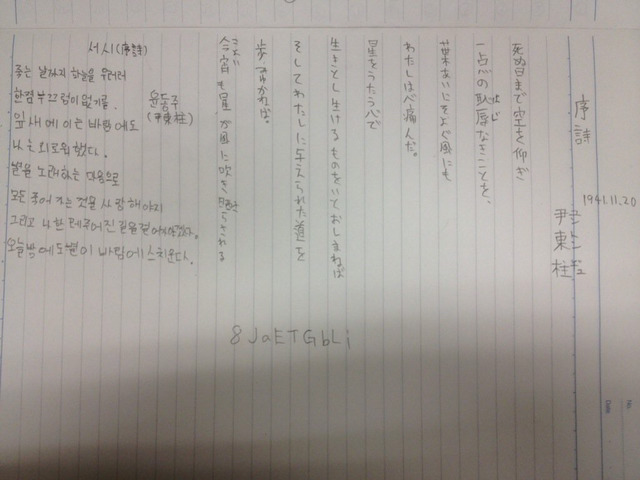 序詩
1941.11.20
尹東柱
死ぬ日まで空を仰ぎ
一点の恥辱なきことを、
はじ
葉あいにそよぐ風にも
わたしは心痛んだ。
星をうたう心で
生きとし生けるものをいとおしまねば
そしてわたしに与えられた道を
歩ゆかねば。
今宵も星が風に吹き晒らされる
こよい
서시(序詩)
윤동주
(尹東柱)
죽는 날까지 하늘을 우러러
한점 부끄럼이 없기를.
잎새에 이는 바람에도
나는 괴로워했다.
별을 노래하는 마음으로
모든 죽어 가는 것을 사랑해야지
그리고 나한테 주어진 길을 걸어가야겠다.
오늘밤에도 별이 바람에 스치운다.
8JaETGbLi
No.
Date